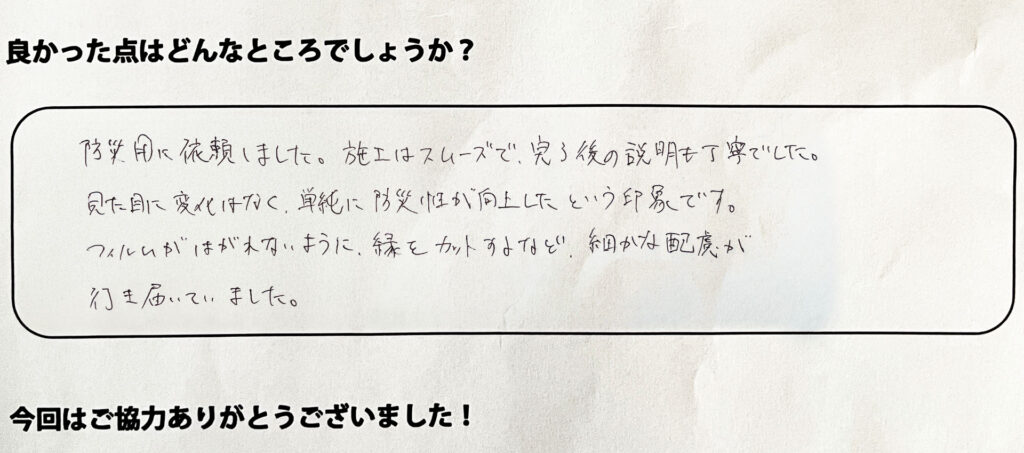 良かった点はどんなところでしょうか？
防災用に依頼しました。施工はスムーズで、完了後の説明も丁寧でした。
見た目に変化はなく、単純に防災性が向上したという印象です。
フィルムがはがれないように、縁をカットするなど、細かな配慮が
行き届いていました。
今回はご協力ありがとうございました！